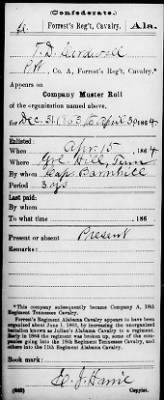 (Confederate.)
Forrest's Reg't, Cavalry. Ala.
T.D.
Pvt, Co. A, Forrest's Reg't, Cavalry.*
Appears on
Company Muster Roll
of the organization named above,
for Dec 31, 1863 to April 30, 1864
Enlisted:
When Apr 15, 1864
Where Hill, Tenn
By whom Capt Barnhill
Period 3 yrs
Last paid:
By whom
To what time , 186
Present or absent Present
Remarks:
*This company subsequently became Company A, 18th
Regiment Tennessee Cavalry.
Forrest's Regiment Alabama Cavalry appears to have been
organized about June 1, 1863, by increasing the unorganized
battalion known as Julian's Alabama Cavalry to a regiment.
Early in 1864 the regiment was broken up, some of the com-
panies going into the 18th Regiment Tennessee Cavalry, and
others into the 11th Regiment Alabama Cavalry.
Book mark:
Copyist.